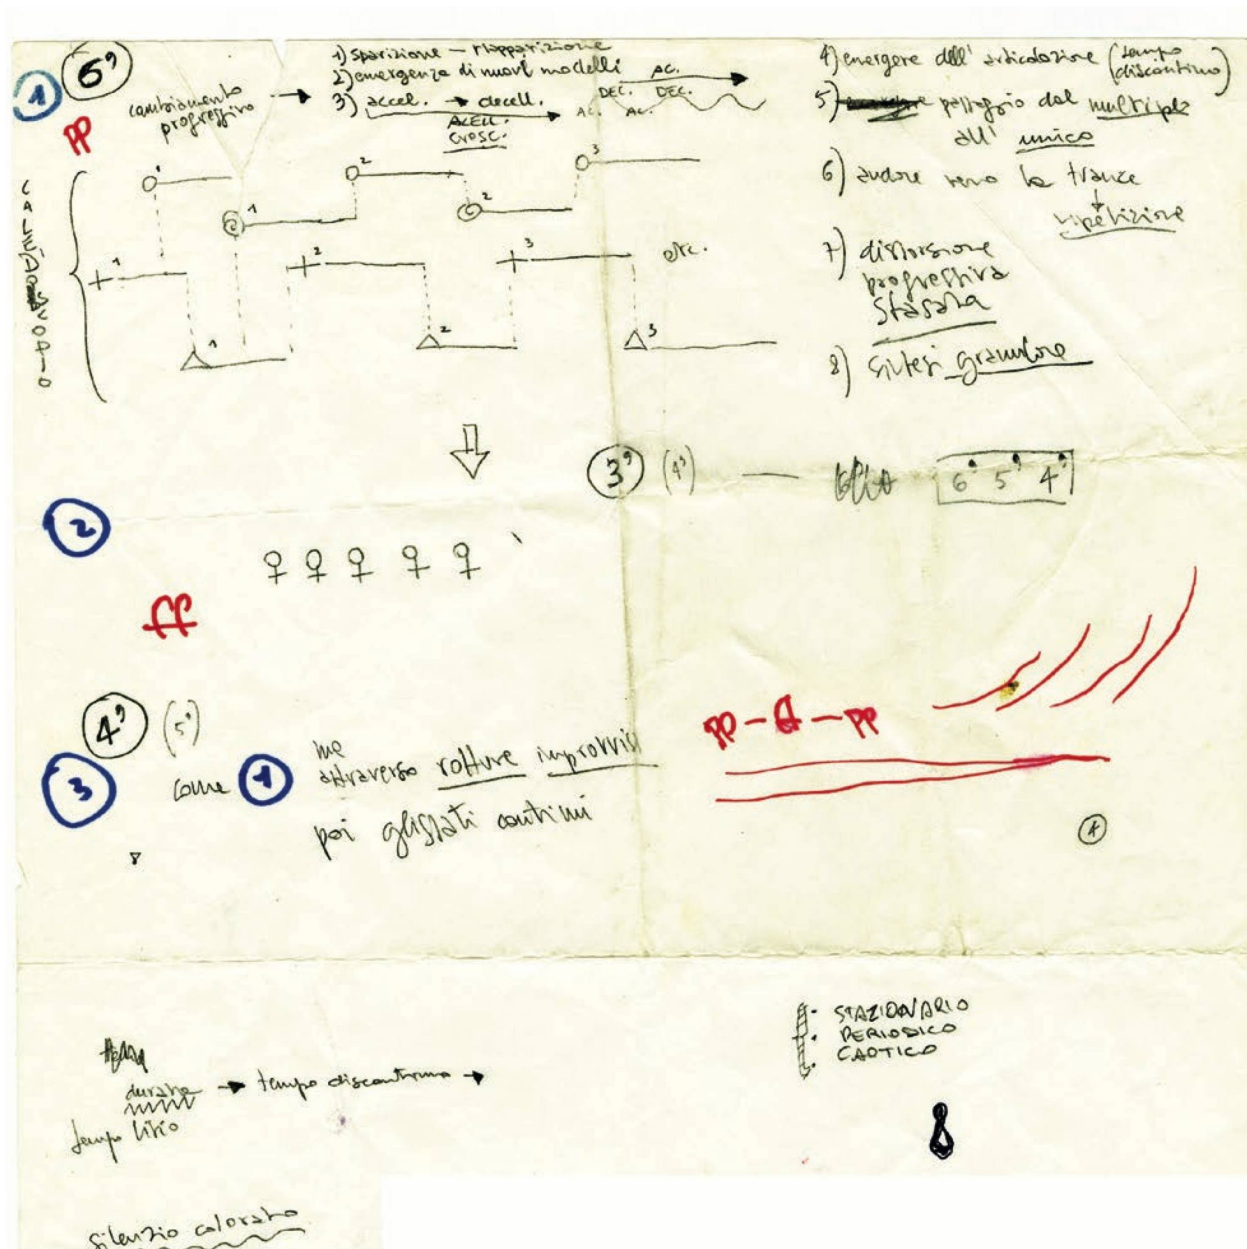 1
6'
pp
cambiamento
progressivo
1) sparizione – riapparizione
2) emergenza di nuovi modelli
3) accel. → decell.
ACELL.
CRESC.
AC.
DEC. DEC.
AC. AC.
4) emergere dell'articolazione (tempo
discontinuo)
5) passaggio dal multiplo
all'unico
6) andare verso la trance
ripetizione
7) distorsione
progressiva
sfasata
8) sintesi granulare
1 2 3
1 2
1 2 3 etc.
1 2 3
3' (4')
6' 5' 4'
2
♀ ♀ ♀ ♀ ♀
ff
4' (5')
3 come 1 ma
attraverso rotture improvvise
poi glissati continui
pp – ff – pp
STAZIONARIO
PERIODICO
CAOTICO
durata → tempo discontinuo →
tempo liscio
silenzio colorato